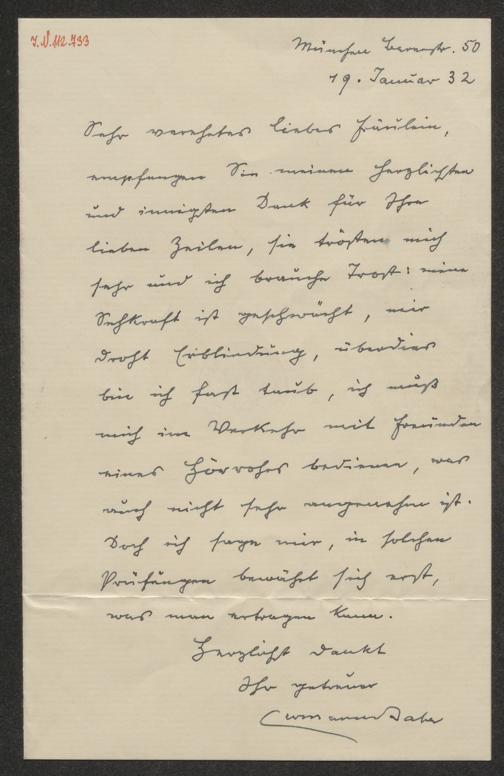 J.N. 112.733
München Barerstr. 50
19. Januar 32
Sehr verehrtes liebes Fräulein,
empfangen Sie meinen herzlichsten
und innigsten Dank für Ihre
lieben Zeilen, sie trösten mich
sehr und ich brauche Trost: meine
Sehkraft ist geschwächt, mir
droht Erblindung, überdies
bin ich fast taub, ich muß
mich im Verkehr mit Freunden
eines Hörrohrs bedienen, was
auch nicht sehr angenehm ist.
Doch ich sage mir, in solchen
Prüfungen bewährt sich erst,
was man ertragen kann.
Herzlichst dankt
Ihr getreuer